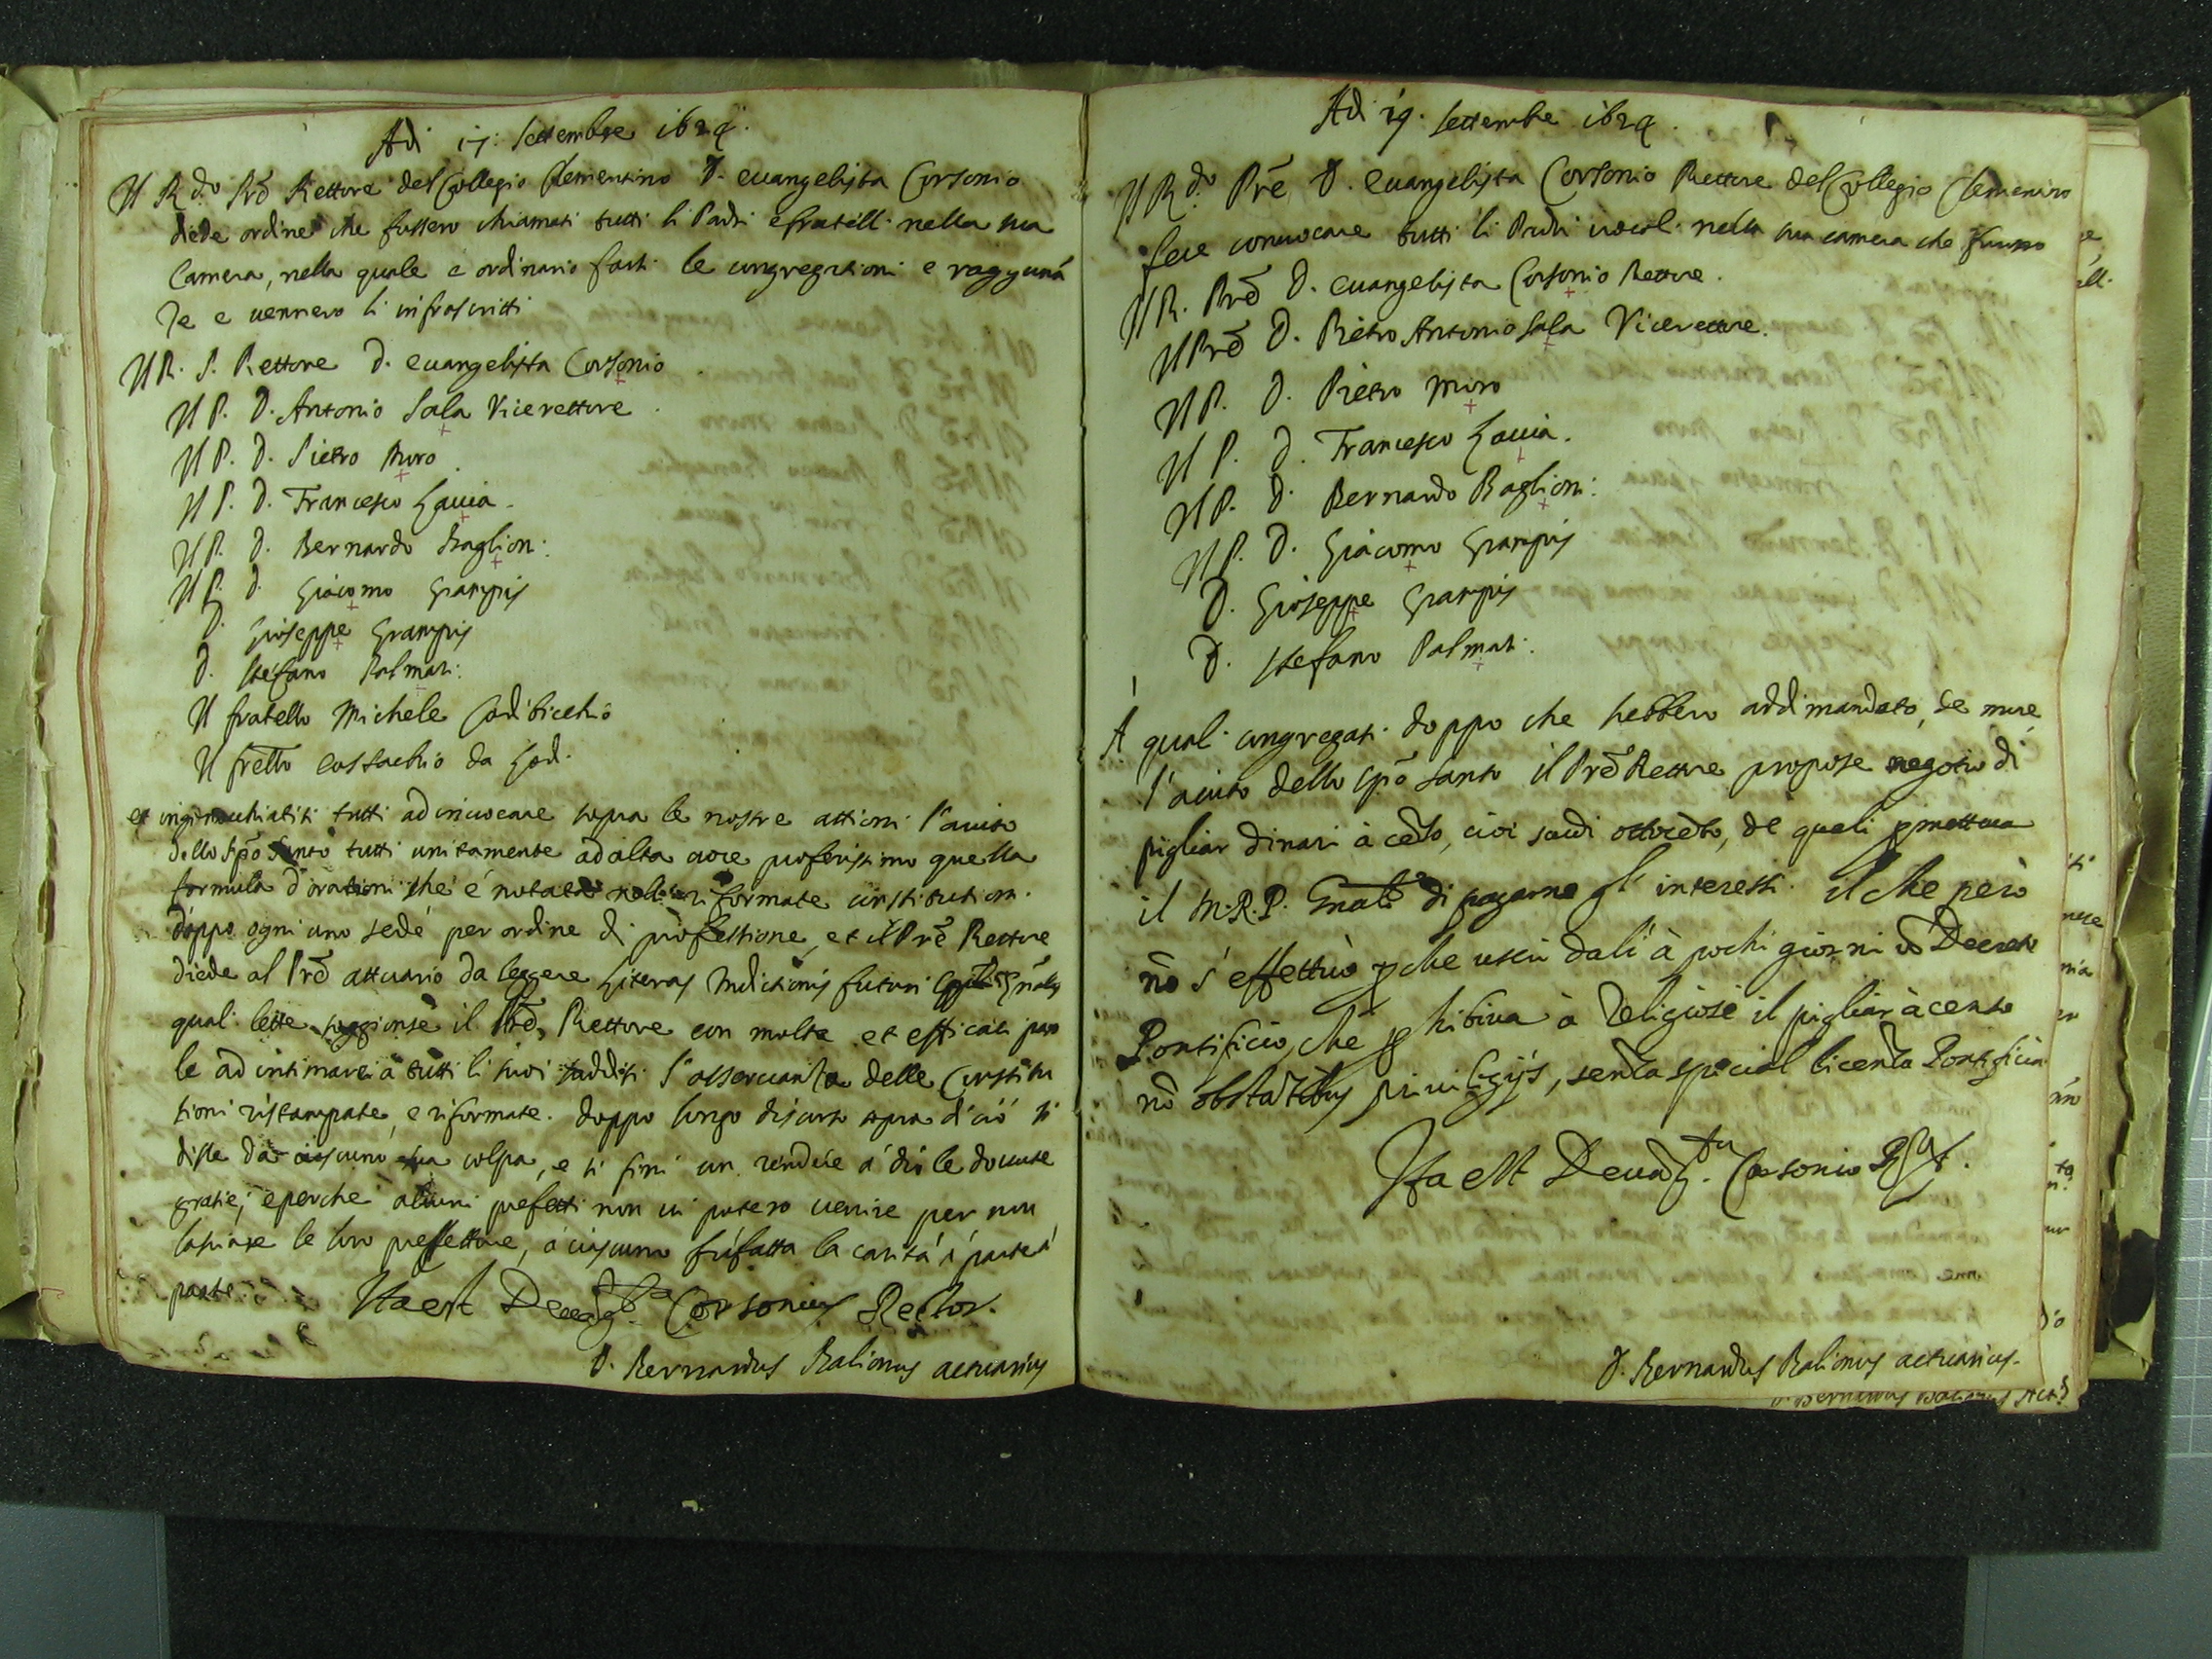 Adi 17: Settembre 1624.
Il R.do Prē Rettore del Collegio Clementino D. euangelista Corsonio
diede ordine che fussero chiamati tutti li Padri e fratelli nella sua
Camera, nella quale e ordinario farsi le congregationi e raggunā
ze e uennero li infrascritti
Il R. P. Rettore D. euangelista Corsonio
Il P. D. Antonio Sala Vicerettore
Il P. D. Pietro Moro
Il P. D. Francesco Lauia.
Il P. D. Bernardo Baglioni:
Il P. D. Giacomo Grampis
D. Gioseppe Grampis
D. Stefano Palmati:
Il fratello Michele
Il frello da Lodi
et inginocchiatisi tutti ad inuocare sopra le nostre attioni l'aiuto
dello Spō Santo tutti unitamente ad alta uoce proferissimo quella
formula d'orationi che é notata nelle riformate constitutioni.
doppo ogni uno sedé per ordine di professione, et il Prē Rettore
diede al Prē attuario da leggere Literas Indictionis futuri
quali lette soggionse il Prē Rettore con molte et efficaci paro
le ad intimare à tutti li suoi sudditi l'osseruanza delle Constitu
tioni ristampate, e riformate. doppo longo discorso sopra di ció si
disse da ciascuno sua colpa, e si finí con rendere á dio le douute
gratie; e perche alcuni prefetti non ui potero uenire per non
lasciare le loro prefetture, á ciascuno fú fatta la caritá á parte á
parte.
Ita est D. Corsonius Rector.
D. Bernardus Balionus actuarius
Adi 19. Settembre 1624.
Il R.do Prē D. Euangelista Corsonio Rettore del Collegio Clementino
fece conuocare tutti li Padri uocali nella sua camera che furno
Il R. Prē D. euangelista Corsonio Rettore.
Il Prē D. Pietro Antonio Sala Vicerettore.
Il P. D. Pietro Moro
Il P. D. Francesco Lauia.
Il P. D. Bernardo Baglioni:
Il P. D. Giacomo Grampis
D. Gioseppe Grampis
D. Stefano Palmati:
quali congregati doppo che hebbero addimandato,
l'aiuto dello Spō Santo il Prē Rettore propose negotio di
pigliar dinari à cēso, cioè scudi ottocēto, de quali pmetteua
il M.R.P. Gnāle di pagarne gl'interessi. il che però
nō s'effettuò pche uscì da lì à pochi giorni vō Decreto
Pontificio, che phibiua à Religiosi il pigliar à censo
nō obstātibus priuilegijs, senza special licenza Pontificia
Ita est D. Corsonio
D. Bernardus Balionus actuarius.
D. Bernardus Balionus Act.s